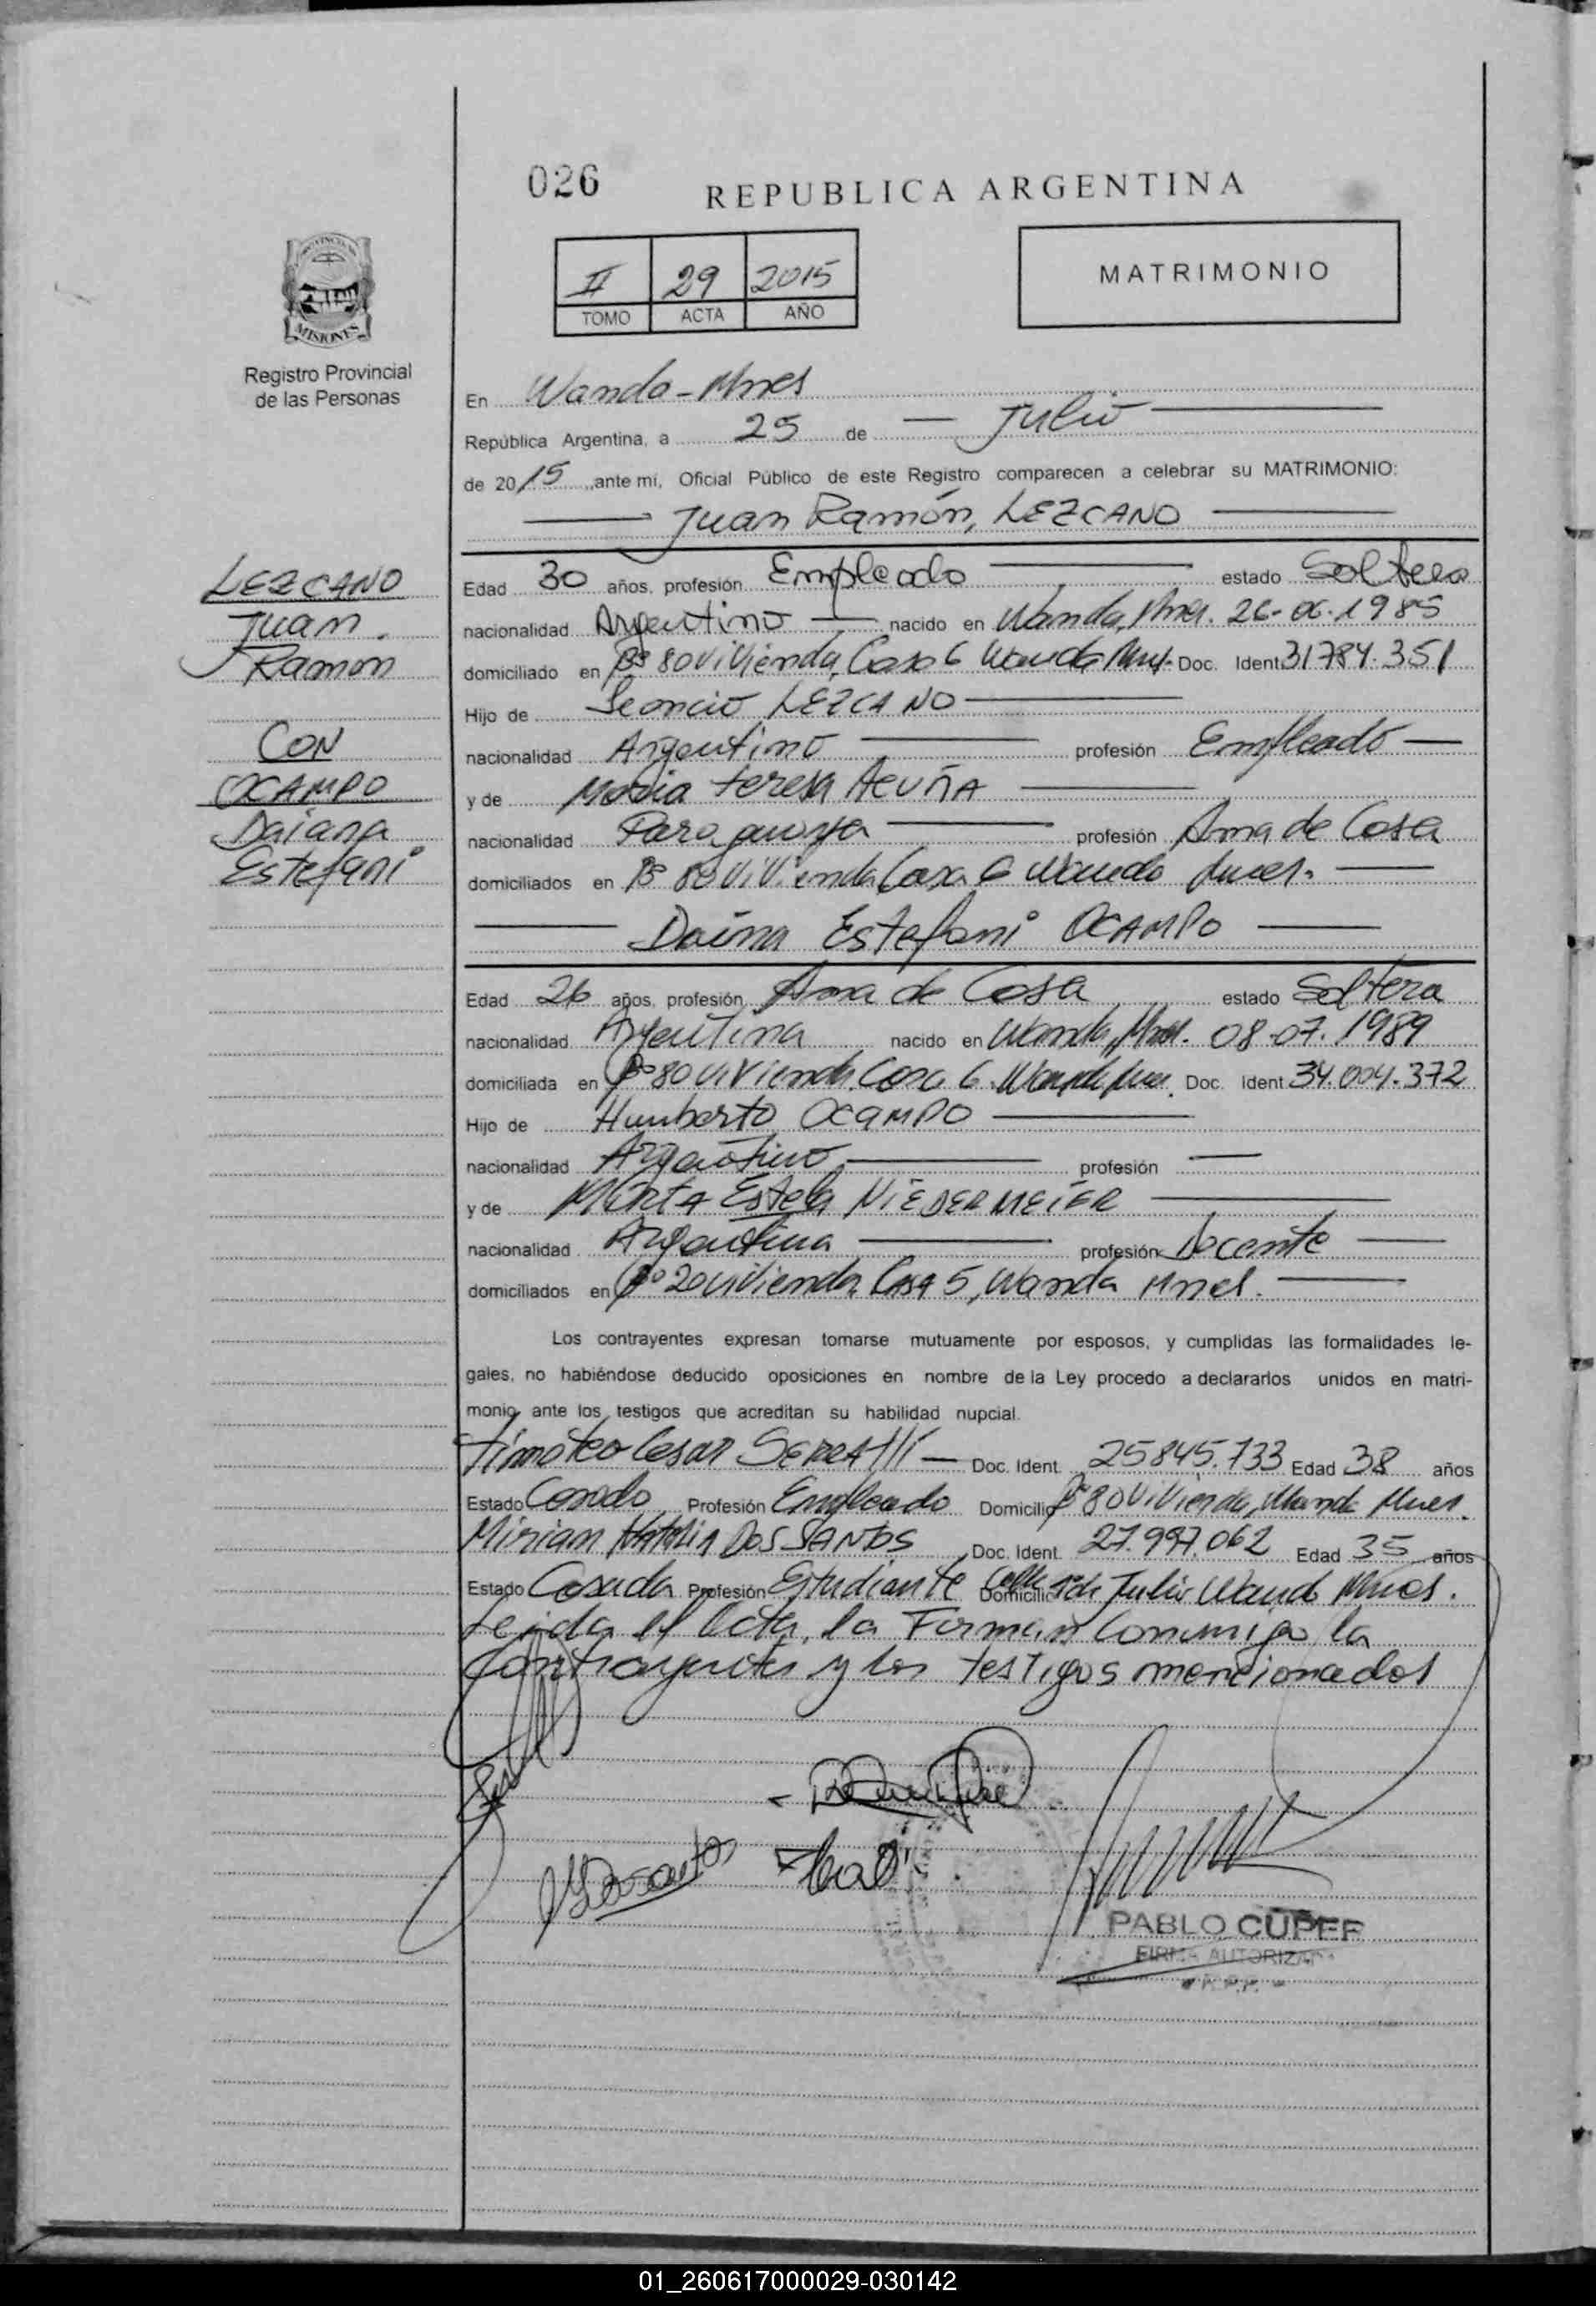 026
REPUBLICA ARGENTINA
II 29 2015
TOMO ACTA AÑO
MATRIMONIO
PROVINCIA DE
MISIONES
Registro Provincial
de las Personas
En Wanda - Mnes
República Argentina, a 25 de Julio
de 2015, ante mí, Oficial Público de este Registro comparecen a celebrar su MATRIMONIO:
Juan Ramón, LEZCANO
LEZCANO
Juan
Ramon
CON
OCAMPO
Daiana
Estefani
Edad 30 años, profesión Empleado estado Soltero
nacionalidad Argentino nacido en Wanda, Mnes. 26-06-1985
domiciliado en Bº 80 Vivienda, Casa 6 Wanda Mnes. Doc. Ident. 31784.351
Hijo de Leoncio LEZCANO
nacionalidad Argentino profesión Empleado
y de Maria Teresa ACUÑA
nacionalidad Paraguaya profesión Ama de Casa
domiciliados en Bº 80 Vivienda Casa 6 Wanda Mnes.
Daina Estefani OCAMPO
Edad 26 años, profesión Ama de Casa estado Soltera
nacionalidad Argentina nacido en Wanda, Mnes. 08-07-1989
domiciliada en Bº 80 Vivienda, Casa 6. Wanda Mnes. Doc. Ident. 34.004.372
Hijo de Humberto OCAMPO
nacionalidad Argentino profesión
y de Mirta Estela NIEDERMEIER
nacionalidad Argentina profesión Docente
domiciliados en Bº 20 Vivienda, Casa 5, Wanda Mnes.
Los contrayentes expresan tomarse mutuamente por esposos, y cumplidas las formalidades le-
gales, no habiéndose deducido oposiciones en nombre de la Ley procedo a declararlos unidos en matri-
monio ante los testigos que acreditan su habilidad nupcial.
Timoteo Cesar Doc. Ident. 25845.733 Edad 38 años
Estado Casado Profesión Empleado Domicilio Bº 80 Vivienda, Wanda Mnes.
Mirian Natalia DOS SANTOS Doc. Ident. 27.997.062 Edad 35 años
Estado Casada Profesión Estudiante Domicilio Calle de Julio Wanda Mnes.
Leida el Acta, la Forman Conmigo la
Contrayentes y los testigos mencionados
PABLO CUPER
FIRMA AUTORIZADA
R.P.P.
01_260617000029-030142